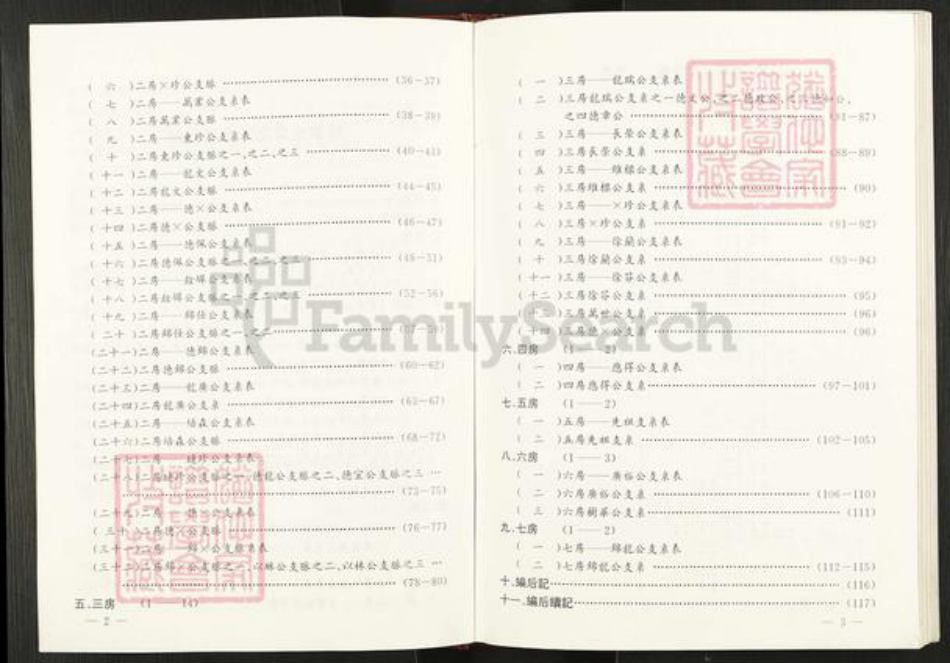 ( 六 )二房×珍公支脉 (36—37)
( 七 )二房——萬業公支系表
( 八 )二房萬業公支脉 (38—39)
( 九 )二房——東珍公支系表
( 十 )二房東珍公支脉之一、之二、之三 (40—43)
(十一 )二房——龍文公支系表
(十二 )二房龍文公支脉 (44—45)
(十三 )二房——德×公支系表
(十四 )二房德×公支脉 (46—47)
(十五 )二房——德佩公支系表
(十六 )二房德佩公支脉之一、之二、之三 (48—51)
(十七 )二房——公支系表
(十八 )二房公支脉之一、之二、之三 (52—56)
(十九 )二房——錦任公支系表
(二十 )二房錦任公支脉之一、之二 (57—59)
(二十一)二房——德錦公支系表
(二十二)二房德錦公支脉 (60—62)
(二十三)二房——龍廣公支系表
(二十四)二房龍廣公支系 (63—67)
(二十五)二房——培森公支系表
(二十六)二房培森公支脉 (68—72)
(二十七)二房——公支系表
(二十八)二房公支脉之一德龍公支脉之二、德宝公支脉之三
(73—75)
(二十九)二房——德×公支系表
(三十 )二房德×公支脉 (76—77)
(三十一)二房——錦×公支脉系表
(三十二)二房錦×公支脉之一、以公支脉之二、以林公支脉之三
(78—80)
五.三房 (1 14)
— 2 —
( 一 )三房——龍瑞公支系表
( 二 )三房龍瑞公支系之一德文公、之二德政公、之三德公、
之四德章公 (81—87)
( 三 )三房——長榮公支系表
( 四 )三房長榮公支系 (88—89)
( 五 )三房——維標公支系表
( 六 )三房維標公支系 (90)
( 七 )三房——×珍公支系表
( 八 )三房×珍公支系 (91—92)
( 九 )三房——徐蘭公支系表
( 十 )三房徐蘭公支系 (93—94)
(十一 )三房——徐公支系表
(十二 )三房徐公支系 (95)
(十三 )三房萬世公支系 (96)
(十四 )三房德×公支系 (96)
六.四房 (1——2)
( 一 )四房——應得公支系表
( 二 )四房應得公支系 (97—101)
七.五房 (1——2)
( 一 )五房——先祖支系表
( 二 )五房先祖支系 (102—105)
八.六房 (1——3)
( 一 )六房——廣裕公支系表
( 二 )六房廣裕公支系 (106—110)
( 三 )六房樹華公支系 (111)
九.七房 (1——2)
( 一 )七房——錦龍公支系表
( 二 )七房錦龍公支系 (112—115)
十.編后記 (116)
十一.編后續記 (117)
— 3 —
FamilySearch